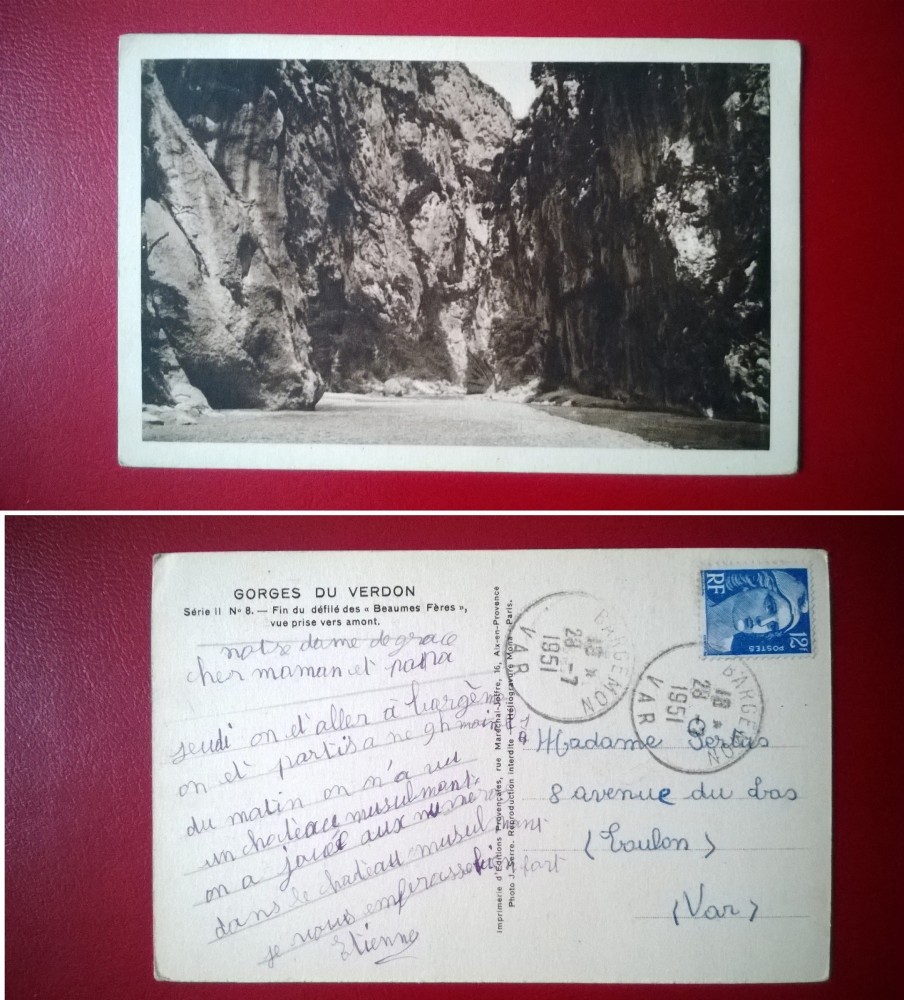 GORGES DU VERDON
Série II Nº 8. — Fin du défilé des « Beaumes Fères »,
vue prise vers amont.
notre dame de grace
cher maman et papa
jeudi on d'aller à bargème
on et partis a ne 9h mois
du matin on n'a vu
un chateau musulmant.
on a joué aux numéros
dans le chateau musulmant
je vous embrasse bien fort
Etienne
imprimerie d'Editions Provençales, rue Maréchal-Joffre, 16, Aix-en-Provence
Photo J. Serre. Reproduction interdite - Héliogravure Mona - Paris.
BARGEMON
18 *
28 -7
1951
VAR
BARGEMON
18 *
28 -7
1951
VAR
RF
12F
POSTES
Madame
8 avenue du Las
(Toulon)
(Var)